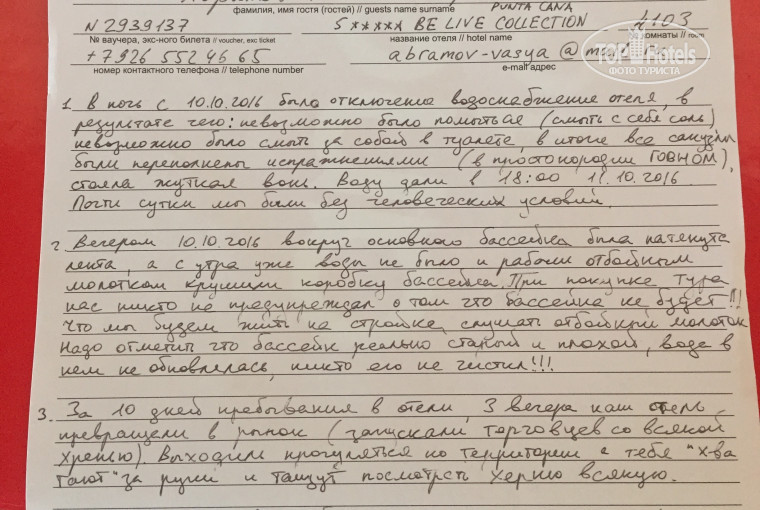 фамилия, имя гостя (гостей) // guests name surname
PUNTA CANA
N 2939137 5***** BE LIVE COLLECTION 4103
№ ваучера, экс-ного билета // voucher, exc ticket название отеля // hotel name комнаты // room
+7926 552 46 65 abramov-vasya@
номер контактного телефона // telephone number e-mail адрес
TOP Hotels
ФОТО ТУРИСТА
1. В ночь с 10.10.2016 было отключение водоснабжение отеля, в
результате чего: невозможно было помыться (смыть с себя соль)
невозможно было смыть за собой в туалете, в итоге все санузлы
были переполнены испражнениями (в простонородии ГОВНОМ),
стояла жуткая вонь. Воду дали в 18:00 11.10.2016
Почти сутки мы были без человеческих условий.
2 Вечером 10.10.2016 вокруг основного бассейна была натянута
лента, а с утра уже воды не было и рабочий отбойным
молотком крушили коробку бассейна. При покупке тура
нас никто не предупреждал о том что бассейна не будет!!!
Что мы будем жить на стройке, слушать отбойный молоток
Надо отметить что бассейн реально старый и плохой, вода в
нем не обновлялась, никто его не чистил!!!
3. За 10 дней пребывания в отели, 3 вечера наш отель
превращели в рынок (запускали торговцев со всякой
хренью). Выходили прогуляться по территории а тебя "хва
тают" за руки и тащут посмотреть херню всякую.